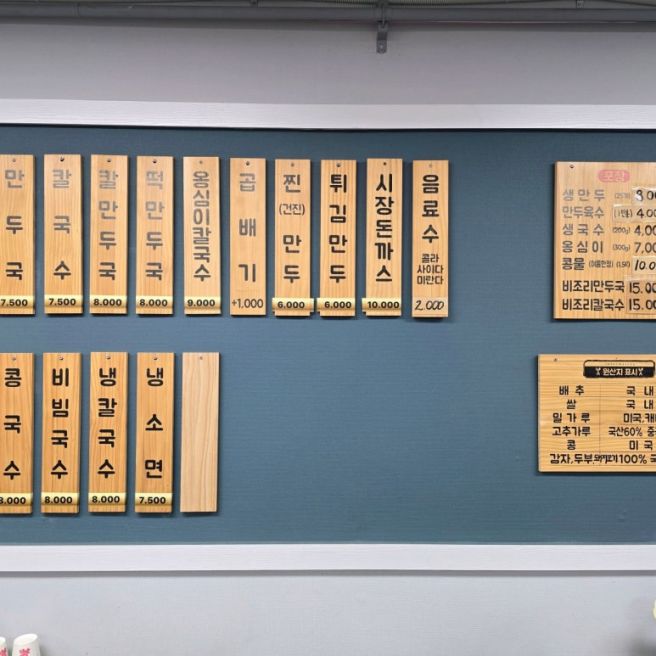 만두국
7.500
칼국수
7.500
칼만두국
8.000
떡만두국
8.000
옹심이칼국수
9.000
곱배기
+1,000
찐
(건진)
만두
6.000
튀김만두
6.000
시장돈까스
10.000
음료수
콜라
사이다
미란다
2,000
콩국수
8.000
비빔국수
8.000
냉칼국수
8.000
냉소면
7.500
포장
생만두 (25개)
만두육수 (1인분) 4,00
생국수 (200g) 4,00
옹심이 (300g) 7,00
콩물 (여름한정) (1.5ℓ) 10.0
비조리만두국 15.00
비조리칼국수 15.00
원산지 표시
배추 국내
쌀 국내
밀가루 미국,캐
고추가루 국산60% 중
콩 미국
감자,두부,돼지고기 100% 국